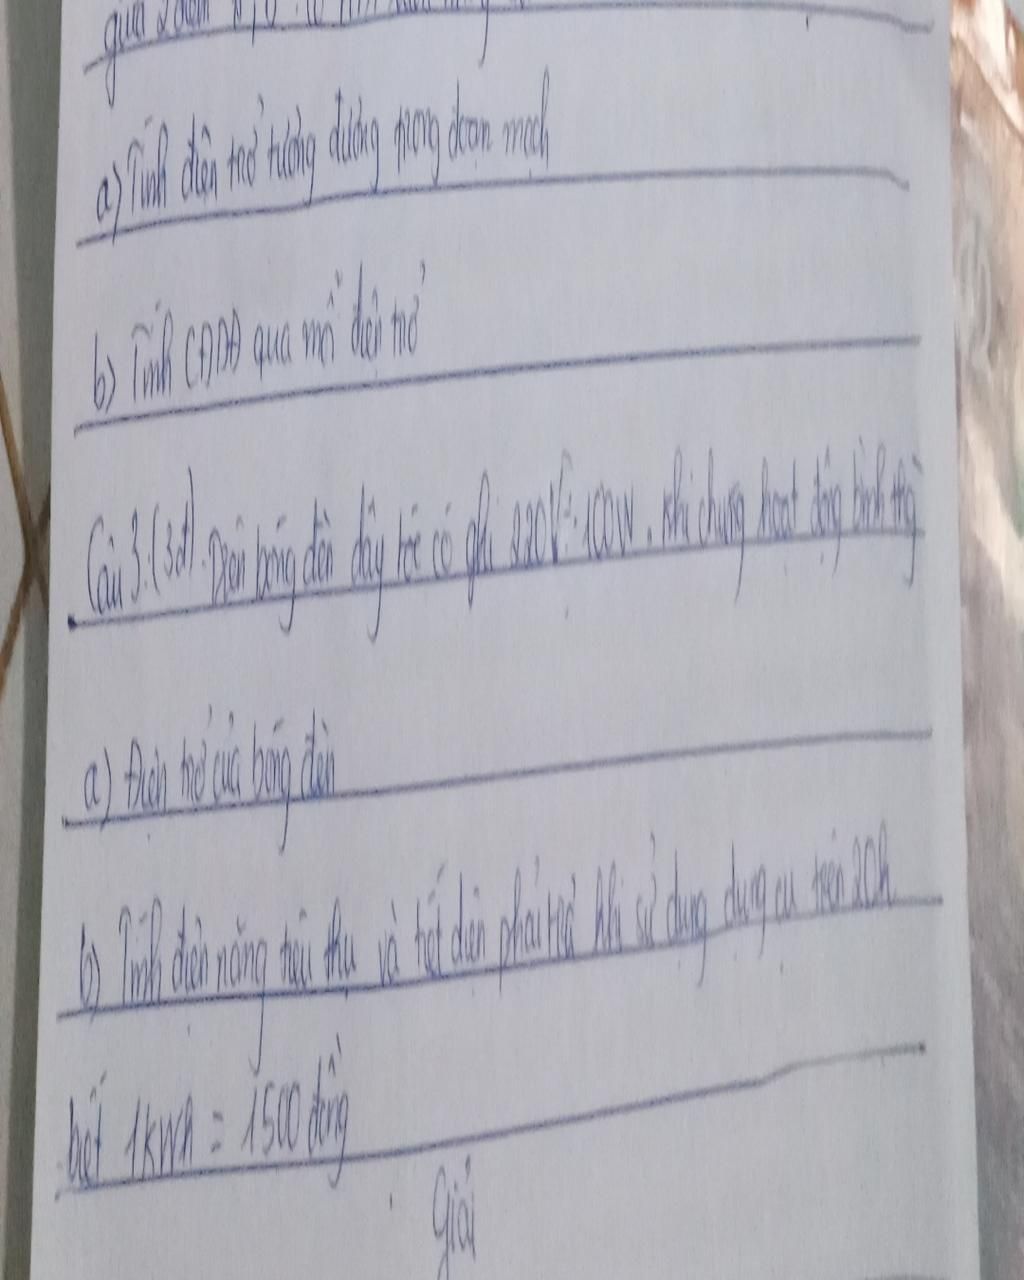 qua
a) Tính điện trở tương đương trong đoạn mạch
b) Tính CĐDĐ qua mỗi điện trở
Câu 3: (3đ). Trên bóng đèn dây tóc có ghi 220V - 100W. Khi chúng hoạt động bình thg
a) Điện trở của bóng đèn
b) Tính điện năng tiêu thụ và tiết điện phải trả khi sử dụng dụng cụ trên 20h
biết 1kWh = 1500 đồng
Giải